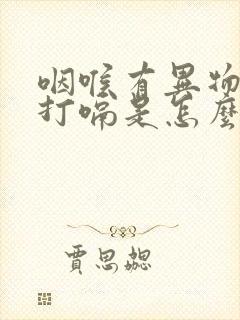 咽喉有異物
打嗝是怎麼
賈思勰